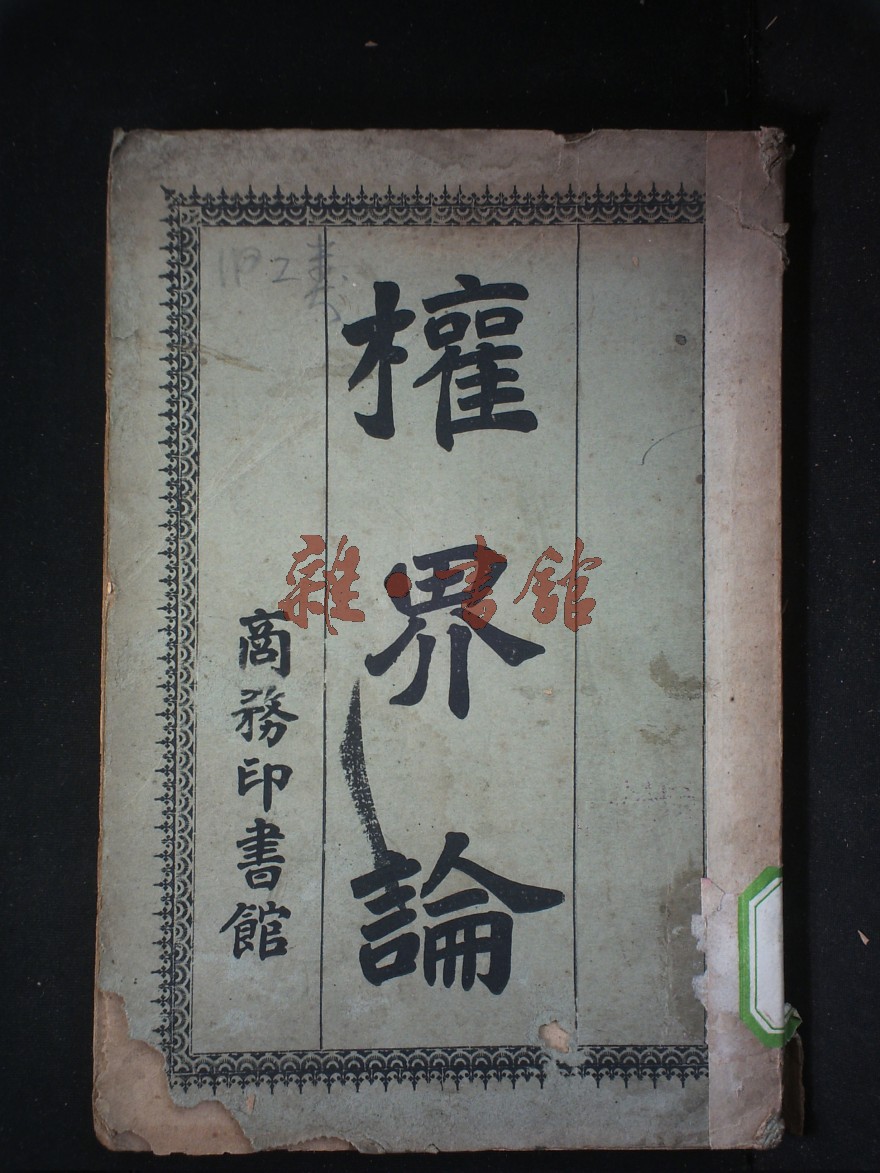 權界論
商務印書館
雜·書館